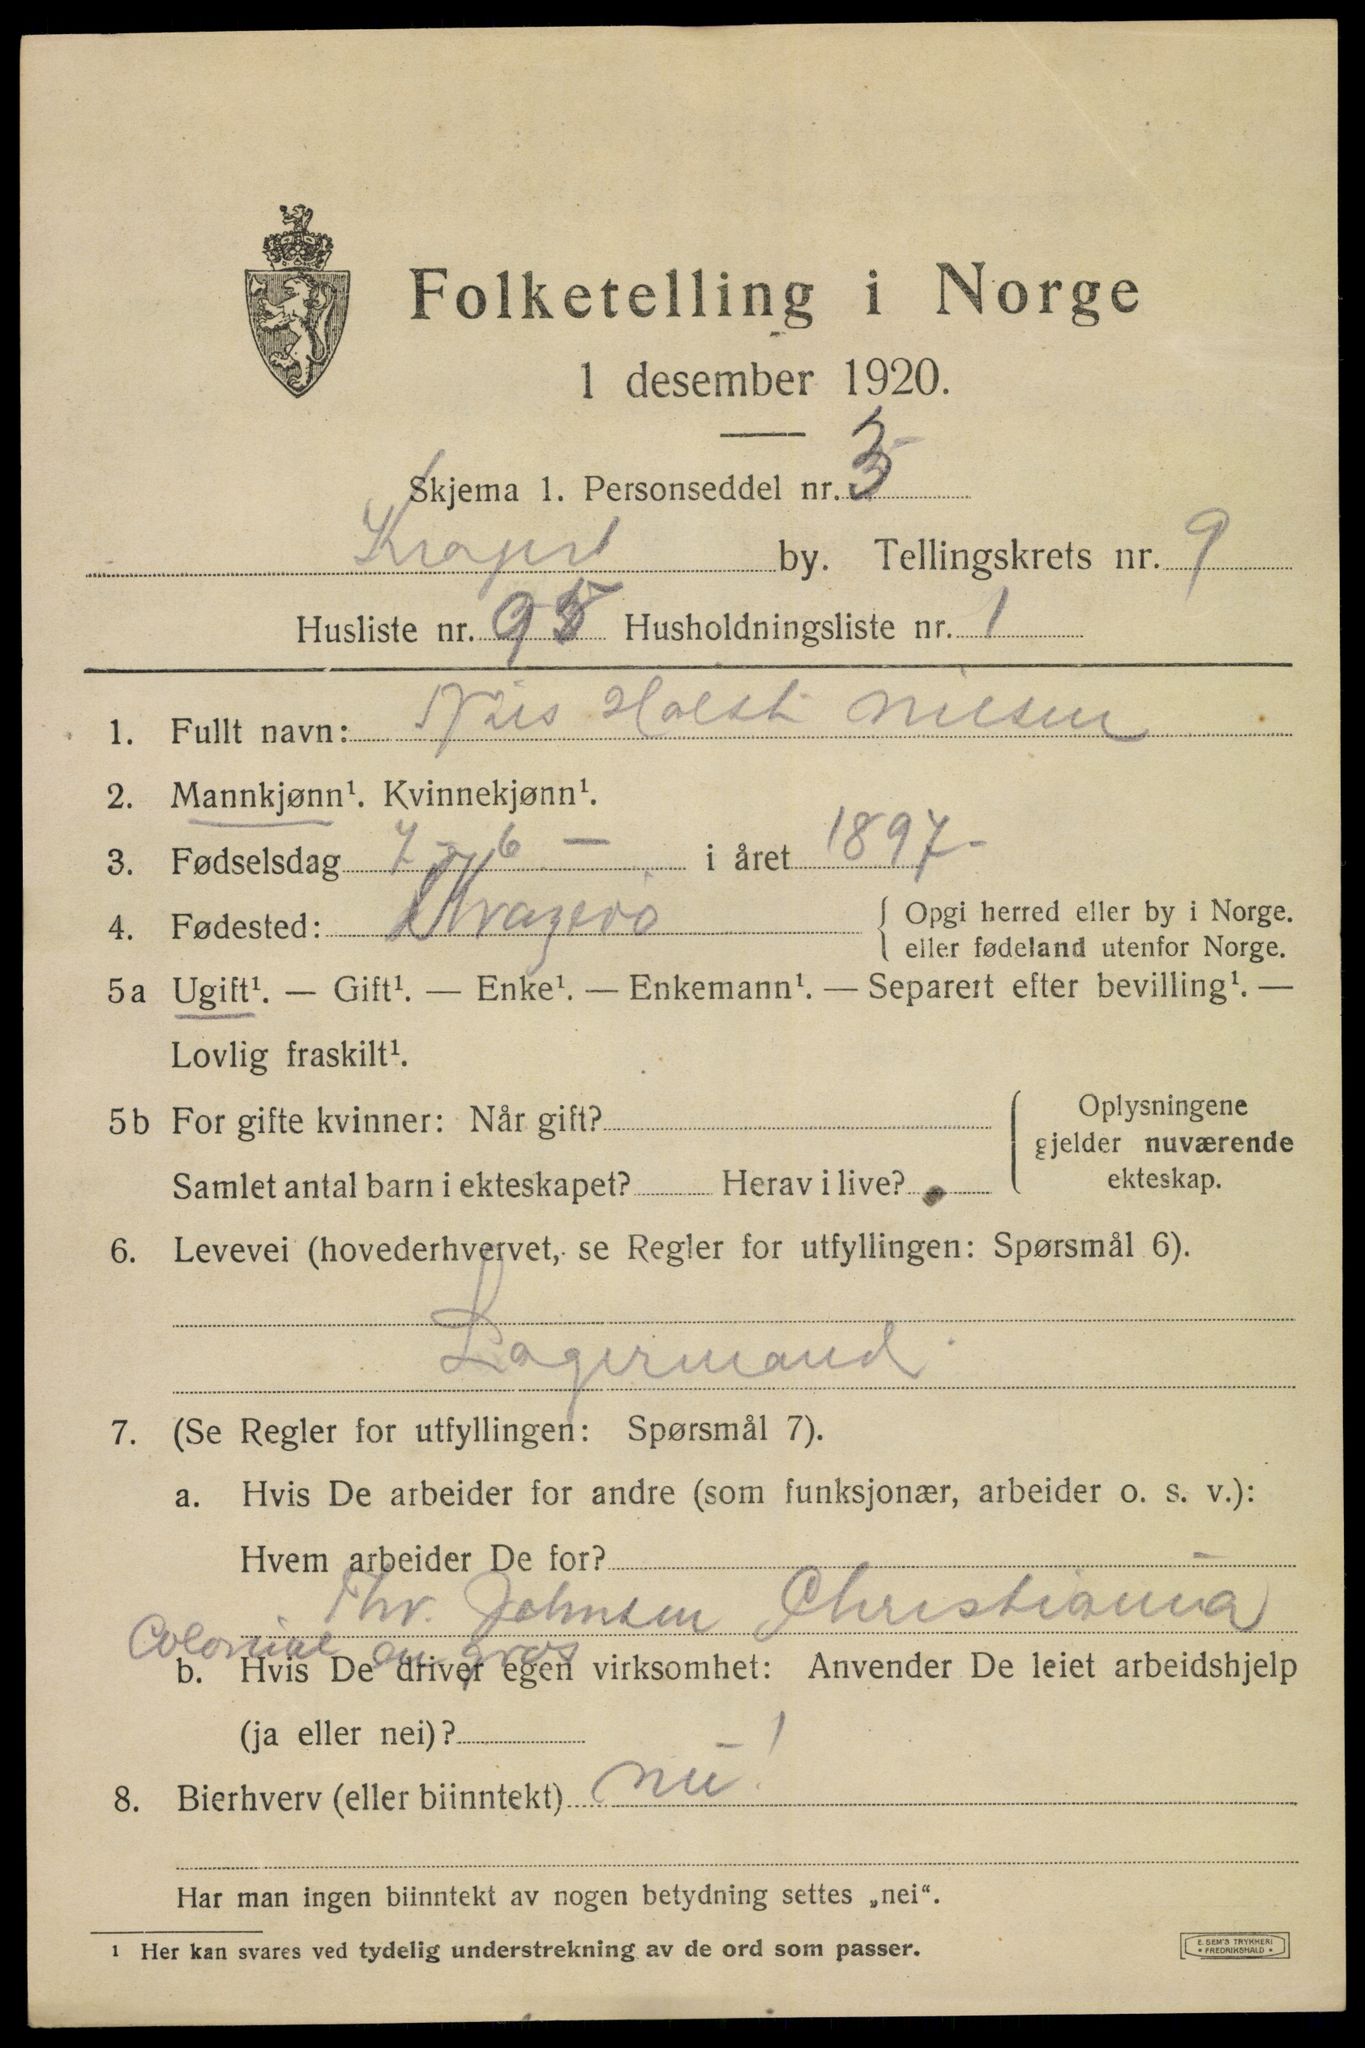 Folketelling i Norge
1 desember 1920.
Skjema 1. Personseddel nr. 3
Kragerø by. Tellingskrets nr. 9
Husliste nr. 95 Husholdningsliste nr. 1
1. Fullt navn: Nils Holst Nilsen
2. Mannkjønn¹. Kvinnekjønn¹.
3. Fødselsdag 7 - 6 - i året 1897-
4. Fødested: Kragerö { Opgi herred eller by i Norge.
eller fødeland utenfor Norge.
5a Ugift¹. — Gift¹. — Enke¹. — Enkemann¹. — Separert efter bevilling¹. —
Lovlig fraskilt¹.
5b For gifte kvinner: Når gift?
Samlet antal barn i ekteskapet? Herav i live?
Oplysningene
gjelder nuværende
ekteskap.
6. Levevei (hovederhvervet, se Regler for utfyllingen: Spørsmål 6).
Lagermand
7. (Se Regler for utfyllingen: Spørsmål 7).
a. Hvis De arbeider for andre (som funksjonær, arbeider o. s. v.):
Hvem arbeider De for?
Thv. Johnsen Christiania
Colonial en gros
b. Hvis De driver egen virksomhet: Anvender De leiet arbeidshjelp
(ja eller nei)?
8. Bierhverv (eller biinntekt) nei!
Har man ingen biinntekt av nogen betydning settes „nei“.
¹ Her kan svares ved tydelig understrekning av de ord som passer.
E. SEM'S TRYKKERI
• FREDRIKSHALD •